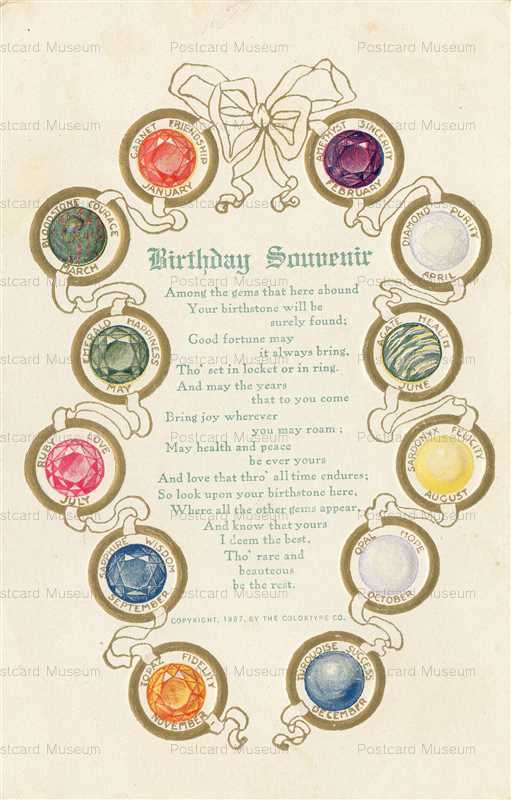 GARNET FRIENDSHIP
JANUARY
AMETHYST SINCERITY
FEBRUARY
BLOODSTONE COURAGE
MARCH
DIAMOND PURITY
APRIL
EMERALD HAPPINESS
MAY
AGATE HEALTH
JUNE
RUBY LOVE
JULY
SARDONYX FELICITY
AUGUST
SAPPHIRE WISDOM
SEPTEMBER
OPAL HOPE
OCTOBER
TOPAZ FIDELITY
NOVEMBER
TURQUOISE SUCCESS
DECEMBER
Birthday Souvenir
Among the gems that here abound
Your birthstone will be
surely found;
Good fortune may
it always bring,
Tho' set in locket or in ring.
And may the years
that to you come
Bring joy wherever
you may roam;
May health and peace
be ever yours
And love that thro' all time endures;
So look upon your birthstone here,
Where all the other gems appear,
And know that yours
I deem the best,
Tho' rare and
beauteous
be the rest.
COPYRIGHT, 1907, BY THE COLORTYPE CO.
Postcard Museum